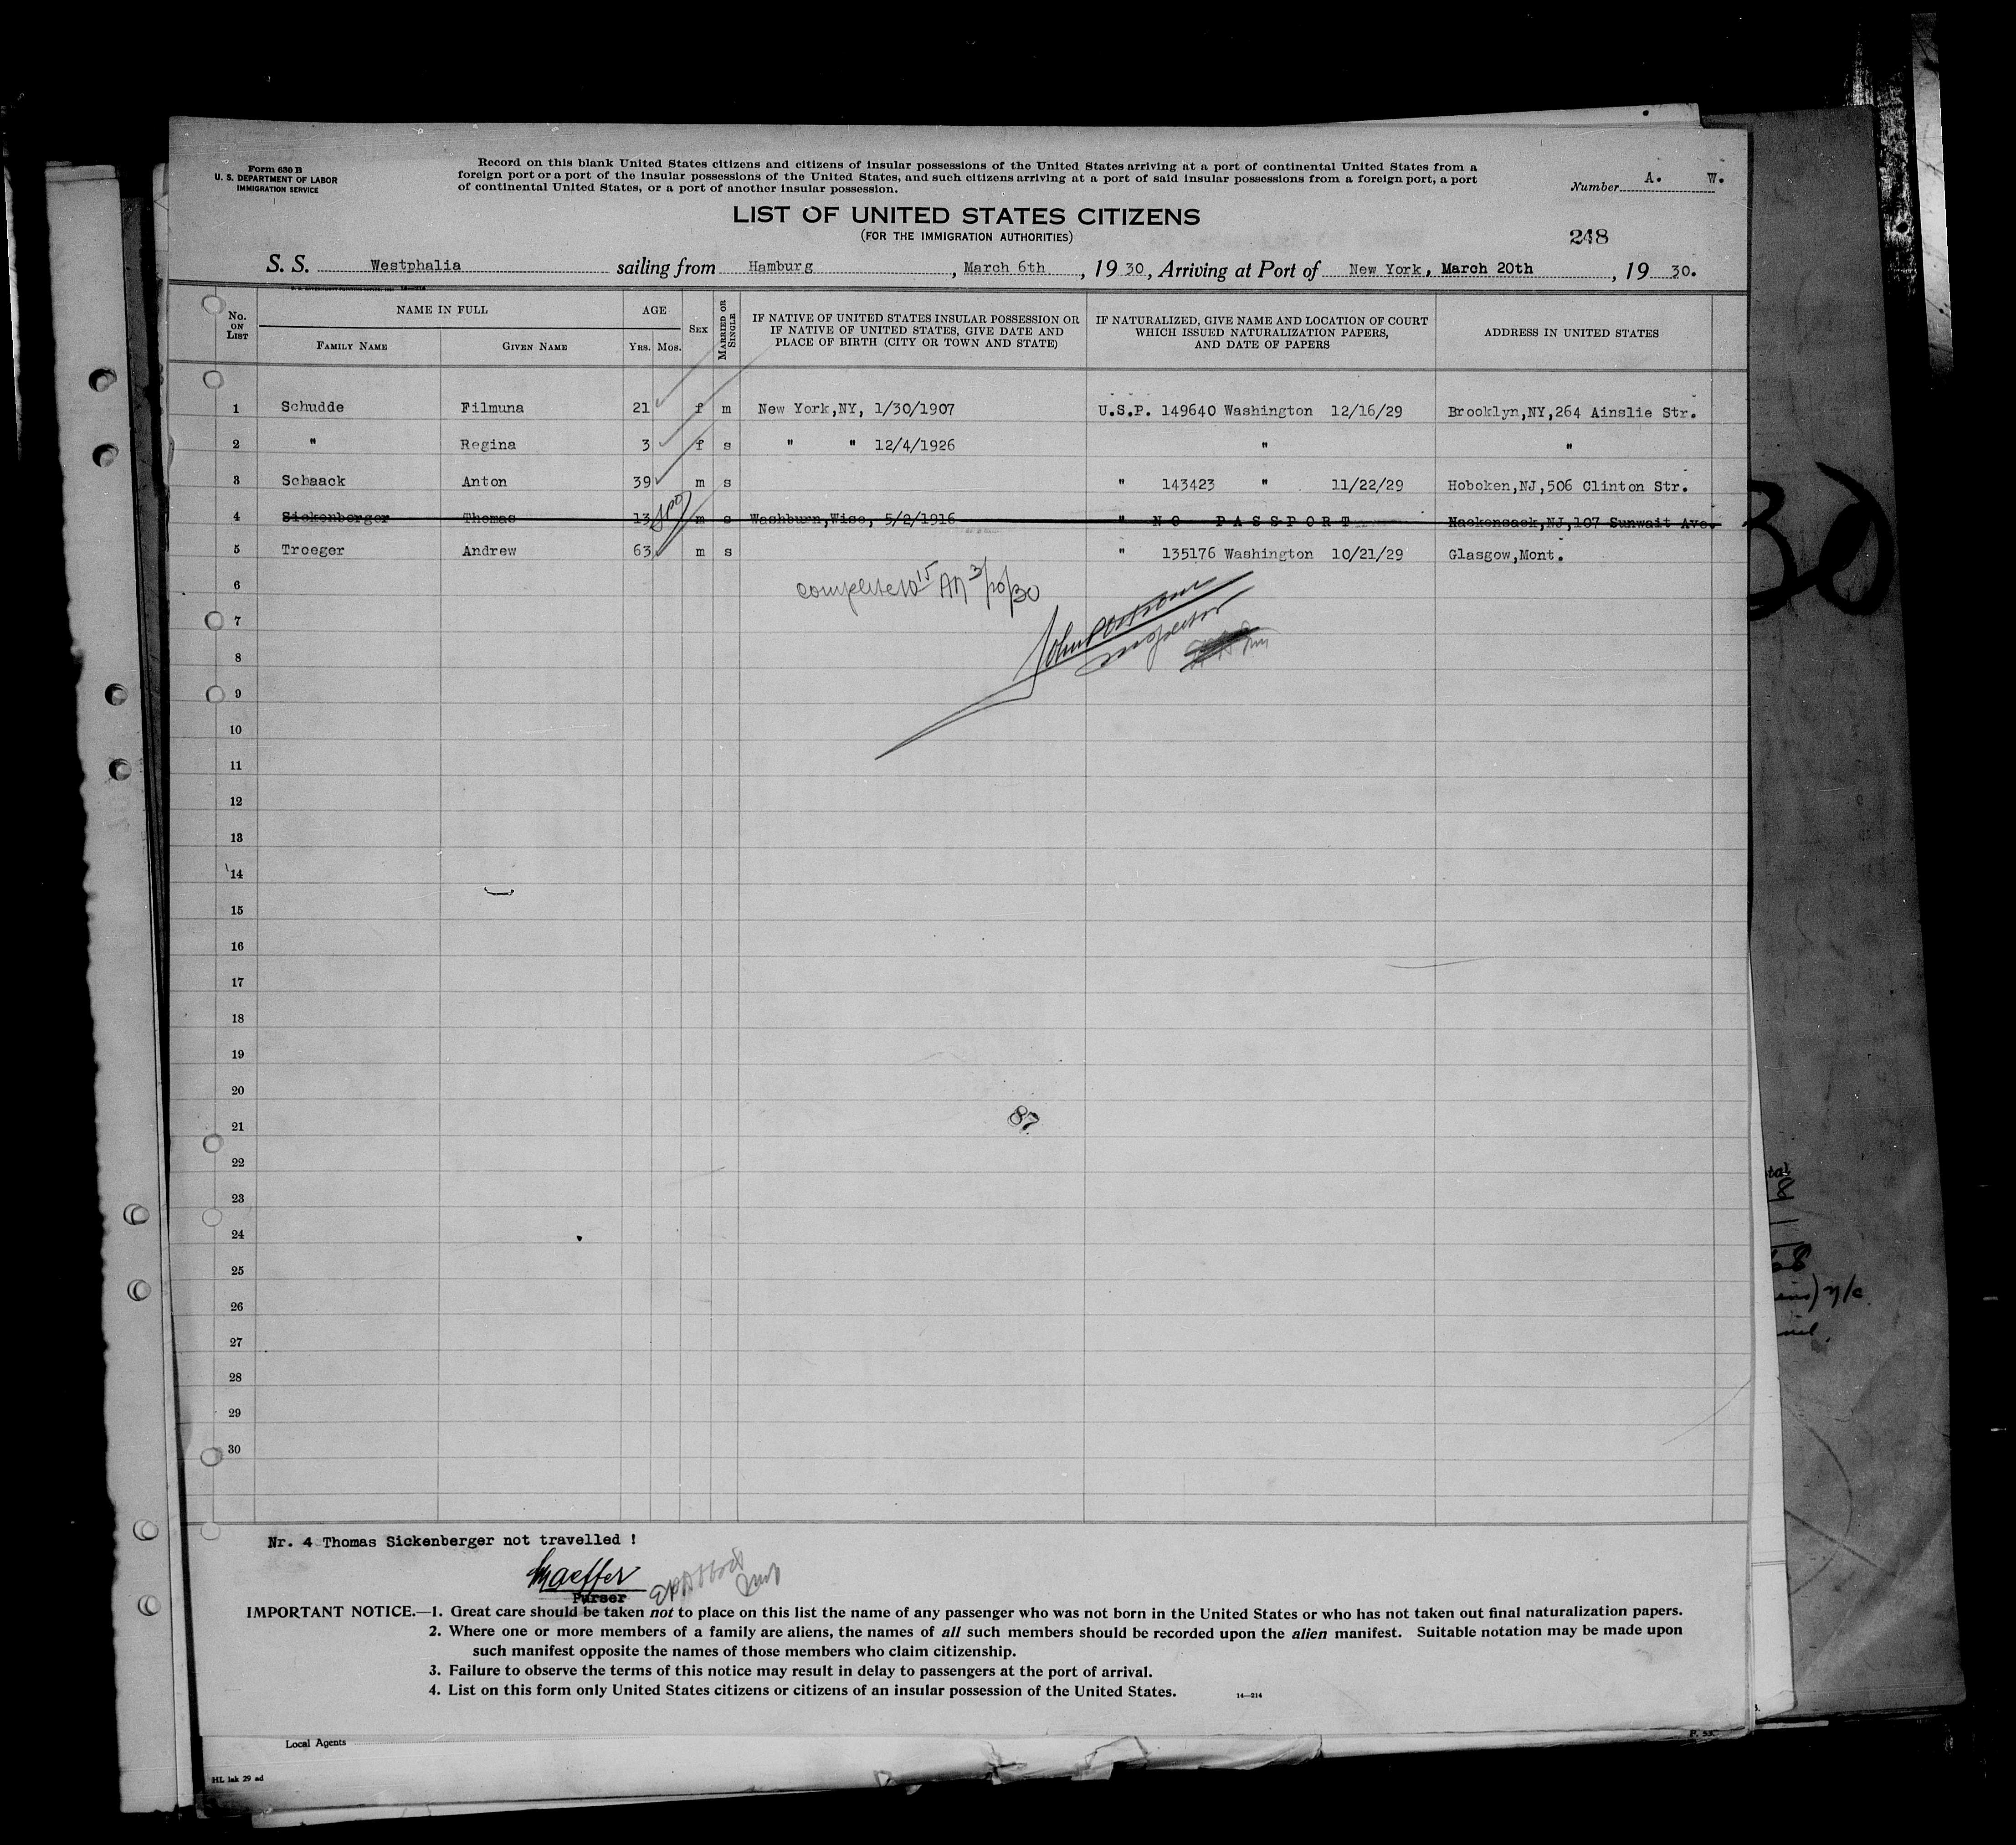 Form 630 B
U. S. DEPARTMENT OF LABOR
IMMIGRATION SERVICE
Record on this blank United States citizens and citizens of insular possessions of the United States arriving at a port of continental United States from a
foreign port or a port of the insular possessions of the United States, and such citizens arriving at a port of said insular possessions from a foreign port, a port
of continental United States, or a port of another insular possession.
Number A. W.
LIST OF UNITED STATES CITIZENS
(FOR THE IMMIGRATION AUTHORITIES)
248
S. S. Westphalia sailing from Hamburg, March 6th, 1930, Arriving at Port of New York, March 20th, 19 30.
No. ON LIST
NAME IN FULL
FAMILY NAME GIVEN NAME
AGE
YRS. MOS.
SEX
MARRIED OR SINGLE
IF NATIVE OF UNITED STATES INSULAR POSSESSION OR
IF NATIVE OF UNITED STATES, GIVE DATE AND
PLACE OF BIRTH (CITY OR TOWN AND STATE)
IF NATURALIZED, GIVE NAME AND LOCATION OF COURT
WHICH ISSUED NATURALIZATION PAPERS,
AND DATE OF PAPERS
ADDRESS IN UNITED STATES
1 Schudde Filmuna 21 f m New York,NY, 1/30/1907 U.S.P. 149640 Washington 12/16/29 Brooklyn,NY,264 Ainslie Str.
2 " Regina 3 f s " " 12/4/1926 " "
3 Schaack Anton 39 m s " 143423 " 11/22/29 Hoboken,NJ,506 Clinton Str.
4 Sickenberger Thomas 13 m s Washburn,Wisc, 5/2/1916 " NO PASSPORT Hackensack,NJ,107 Sunwait Ave.
5 Troeger Andrew 63 m s " 135176 Washington 10/21/29 Glasgow,Mont.
6
7
8
9
10
11
12
13
14
15
16
17
18
19
20
21
22
23
24
25
26
27
28
29
30
87
Nr. 4 Thomas Sickenberger not travelled !
Purser
IMPORTANT NOTICE.—1. Great care should be taken not to place on this list the name of any passenger who was not born in the United States or who has not taken out final naturalization papers.
2. Where one or more members of a family are aliens, the names of all such members should be recorded upon the alien manifest. Suitable notation may be made upon
such manifest opposite the names of those members who claim citizenship.
3. Failure to observe the terms of this notice may result in delay to passengers at the port of arrival.
4. List on this form only United States citizens or citizens of an insular possession of the United States.
14—214
Local Agents
P. 53.
HL lak 29 ad